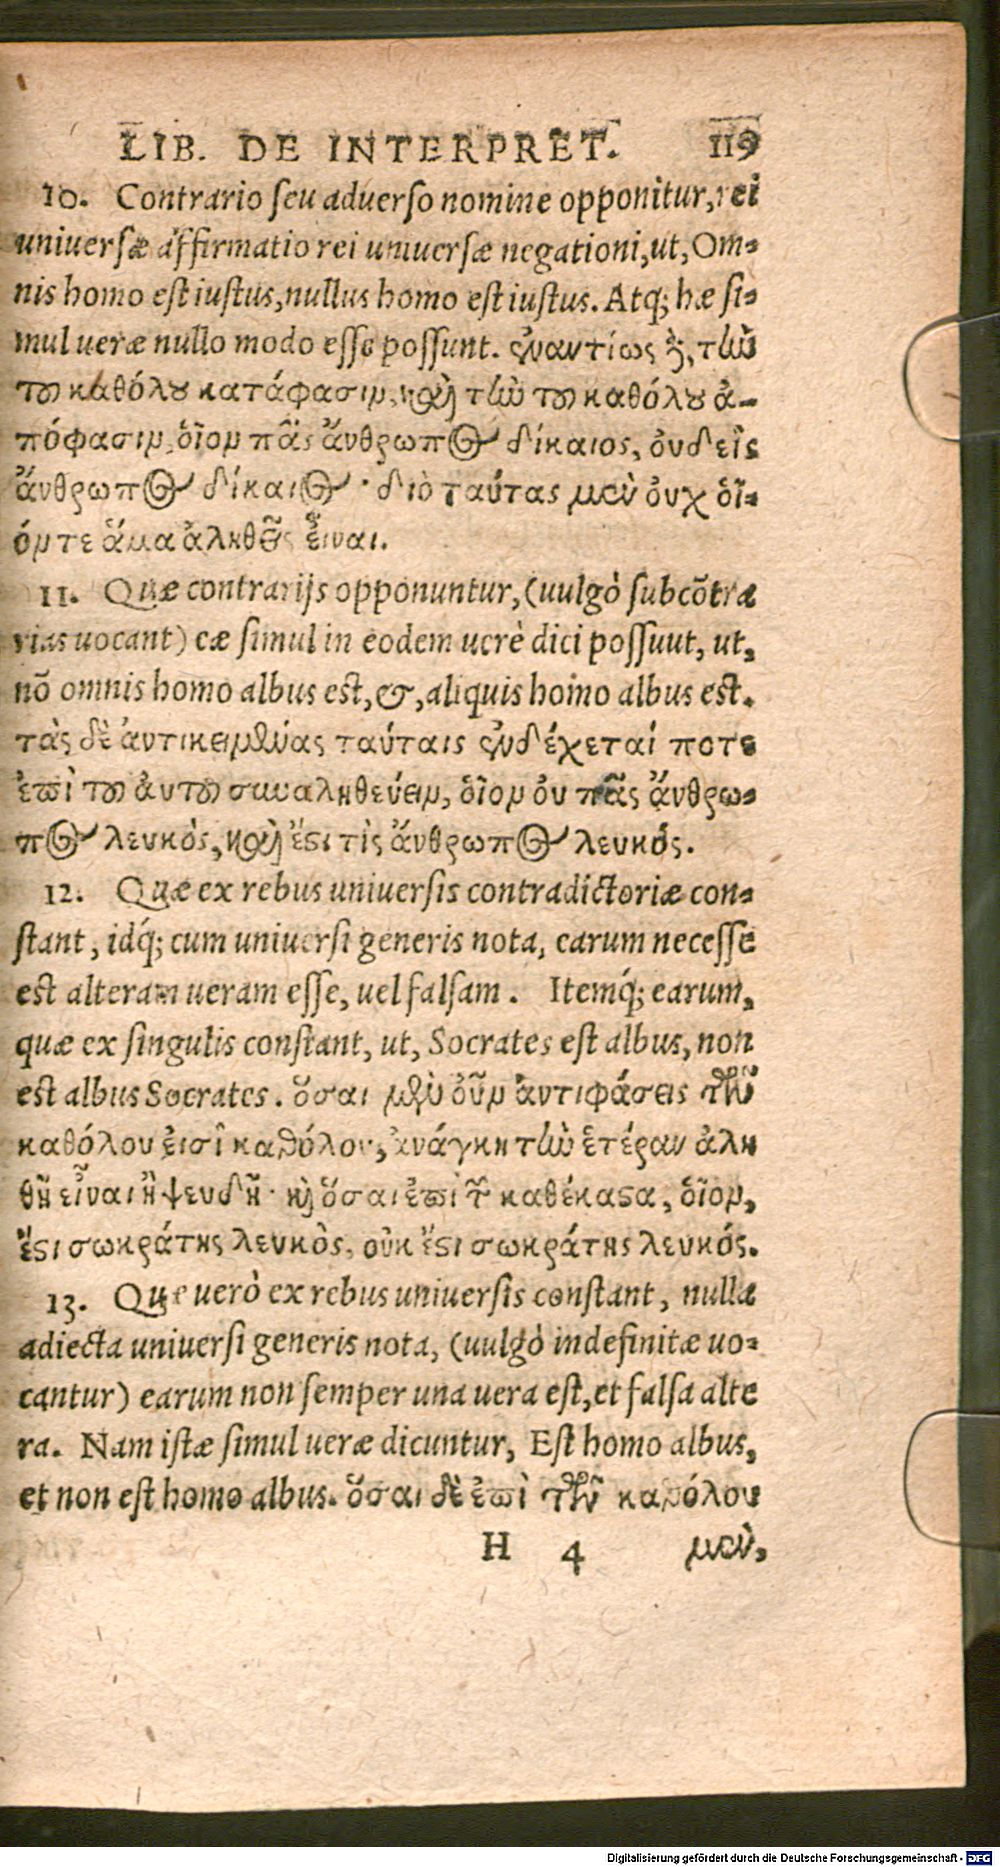 LIB. DE INTERPRET. 119
10. Contrario seu aduerso nomine opponitur, rei
uniuersæ affirmatio rei uniuersæ negationi, ut, Om-
nis homo est iustus, nullus homo est iustus. Atq; hæ si-
mul ueræ nullo modo esse possunt. ἐναντίως δὲ, τὴν
τοῦ καθόλου κατάφασιν, καὶ τὴν τοῦ καθόλου ἀ-
πόφασιν, οἷον πᾶς ἄνθρωπος δίκαιος, οὐδεὶς
ἄνθρωπος δίκαιος· διὸ ταύτας μὲν οὐχ οἷ-
όν τε ἅμα ἀληθεῖς εἶναι.
11. Quæ contrarijs opponuntur, (uulgò subcõtra
rias uocant) eæ simul in eodem uerè dici possuut, ut,
nõ omnis homo albus est, &, aliquis homo albus est.
τὰς δὲ ἀντικειμένας ταύταις ἐνδέχεταί ποτε
ἐπὶ τοῦ ἀυτοῦ συναληθεύειν, οἷον οὐ πᾶς ἄνθρω-
πος λευκὸς, καὶ ἔστι τὶς ἄνθρωπος λευκός.
12. Quæ ex rebus uniuersis contradictoriæ con-
stant, idq́; cum uniuersi generis nota, earum necesse
est alteram ueram esse, uel falsam. Itemq́; earum,
quæ ex singulis constant, ut, Socrates est albus, non
est albus Socrates. ὅσαι μὲν οὖν ἀντιφάσεις τῶν
καθόλου εἰσὶ καθόλου, ἀνάγκη τὴν ἑτέραν ἀλη
θῆ εἶναι ἢ ψευδῆ· καὶ ὅσαι ἐπὶ τῶν καθέκαστα, οἷον,
ἔστι σωκράτης λευκὸς, οὐκ ἔστι σωκράτης λευκός.
13. Que uerò ex rebus uniuersis constant, nulla
adiecta uniuersi generis nota, (uulgò indefinitæ uo-
cantur) earum non semper una uera est, et falsa alte
ra. Nam istæ simul ueræ dicuntur, Est homo albus,
et non est homo albus. ὅσαι δὲ ἐπὶ τῶν καθόλου
H 4 μὲν,
Digitalisierung gefördert durch die Deutsche Forschungsgemeinschaft - DFG